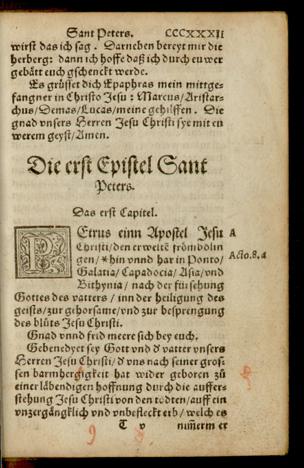 Sant Peters. CCCXXXII
wirst das ich sag. Darneben bereyt mir die
herberg: dann ich hoffe daß ich durch euwer
gebått euch gschenckt werde.
Es grüsset dich Epaphras mein mittge-
fangner in Christo Jesu: Marcus/Aristar-
chus/Demas/Lucas/meine gehilffen. Die
gnad vnsers Herren Jesu Christi sye mit eu
werem geyst/Amen.
Die erst Epistel Sant
Peters.
Das erst Capitel.
PEtrus einn Apostel Jesu A
Christi/den erweltē frömbdlin
gen/*hin vnnd har in Ponto/ Acto.8.a
Galatia/Capadocia/Asia/vnd
Bithynia/nach der fürsehung
Gottes des vatters/inn der heiligung des
geists/zur gehorsame/vnd zur besprengung
des blůts Jesu Christi.
Gnad vnnd frid meere sich bey euch.
Gebenedyet sey Gott vnd d' vatter vnsers
Herren Jesu Christi/d' vns nach seiner gros-
sen barmhergkeit hat wider geboren zů
einer låbendigen hoffnung durch die auffer-
stehung Jesu Christi von den todten/auff ein
vnzergångklich vnd vnbefleckt erb/welches
T v